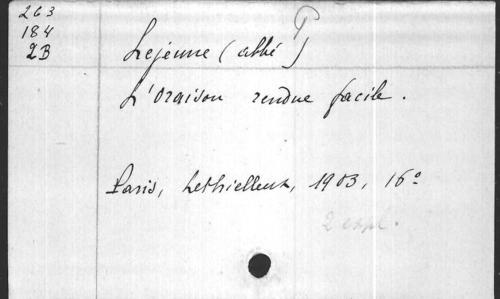 263
184
2B
Lejeune (abbé P)
L'oraison rendue facile.
Paris, Lethielleux, 1903, 16°
2 expl.